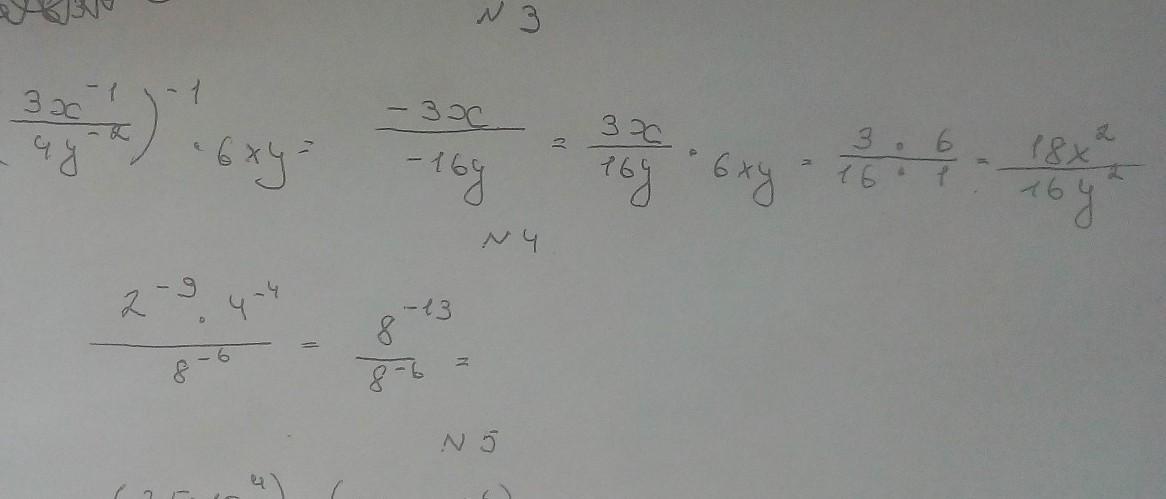 N 3
(3x^-1 / 4y^-2)^-1 · 6xy = -3x / -16y = 3x / 16y · 6xy = 3 · 6 / 16 · 1 = 18x^2 / 16y^2
N 4
2^-9 · 4^-4 / 8^-6 = 8^-13 / 8^-6 =
N 5